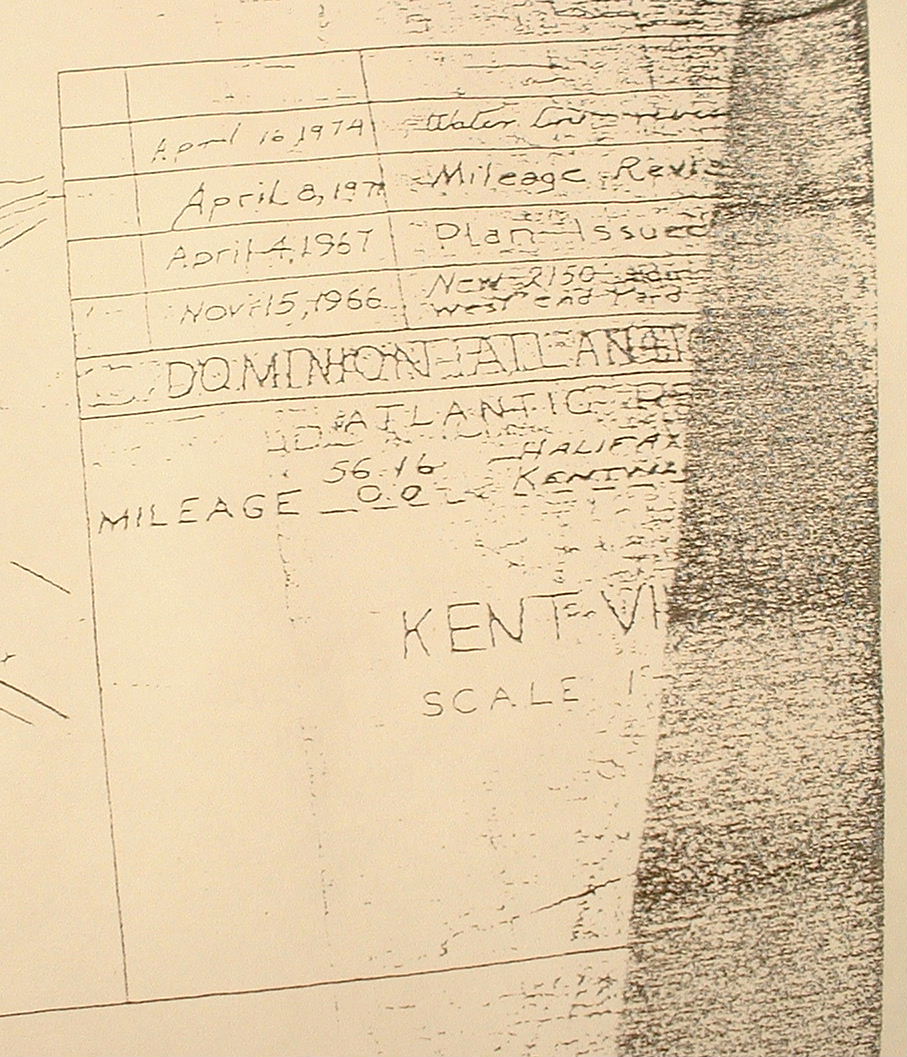 April 16, 1974 Water
April 8, 197 Mileage Revis
April 4, 1967 Plan Issued
Nov. 15, 1966 New 2150
west end Yard
DOMINION ATLANTIC
ATLANTIC
56.16 HALIFAX
MILEAGE 0.0 KENTVI
KENTVI
SCALE 1"